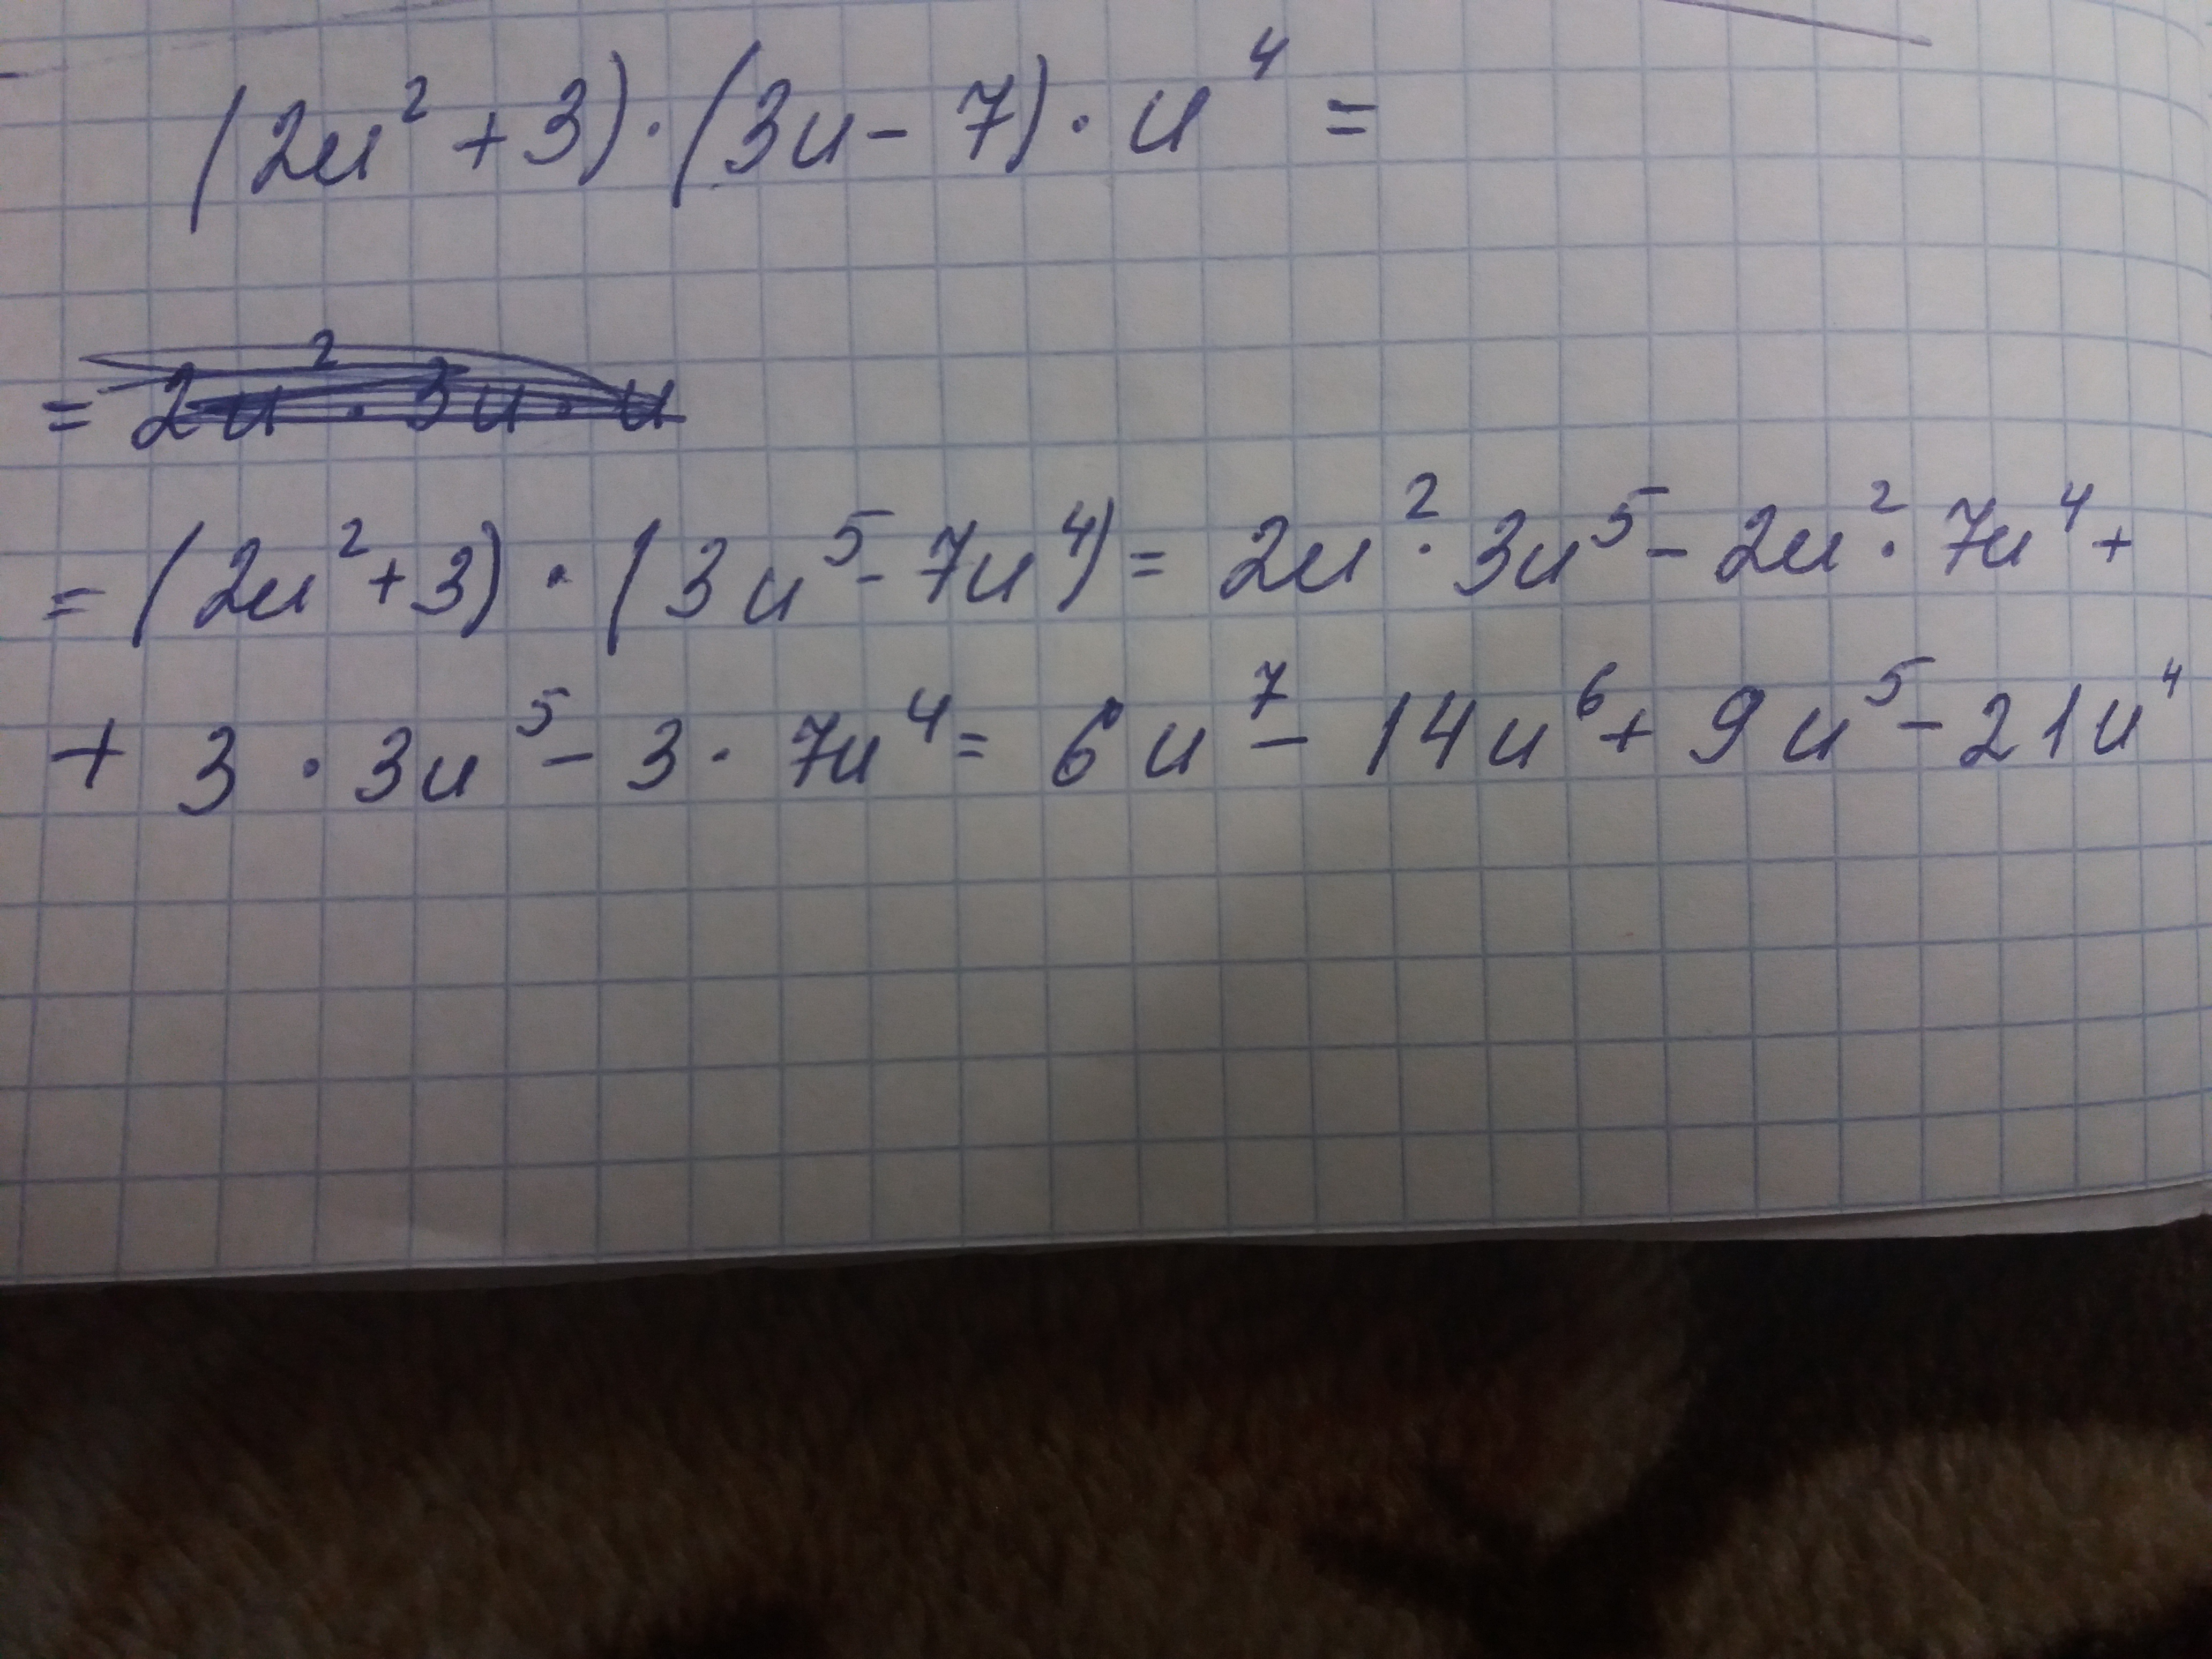 (2u² + 3) · (3u - 7) · u⁴ =
= 2u² · 3u · u
= (2u² + 3) · (3u⁵ - 7u⁴) = 2u² · 3u⁵ - 2u² · 7u⁴ +
+ 3 · 3u⁵ - 3 · 7u⁴ = 6u⁷ - 14u⁶ + 9u⁵ - 21u⁴